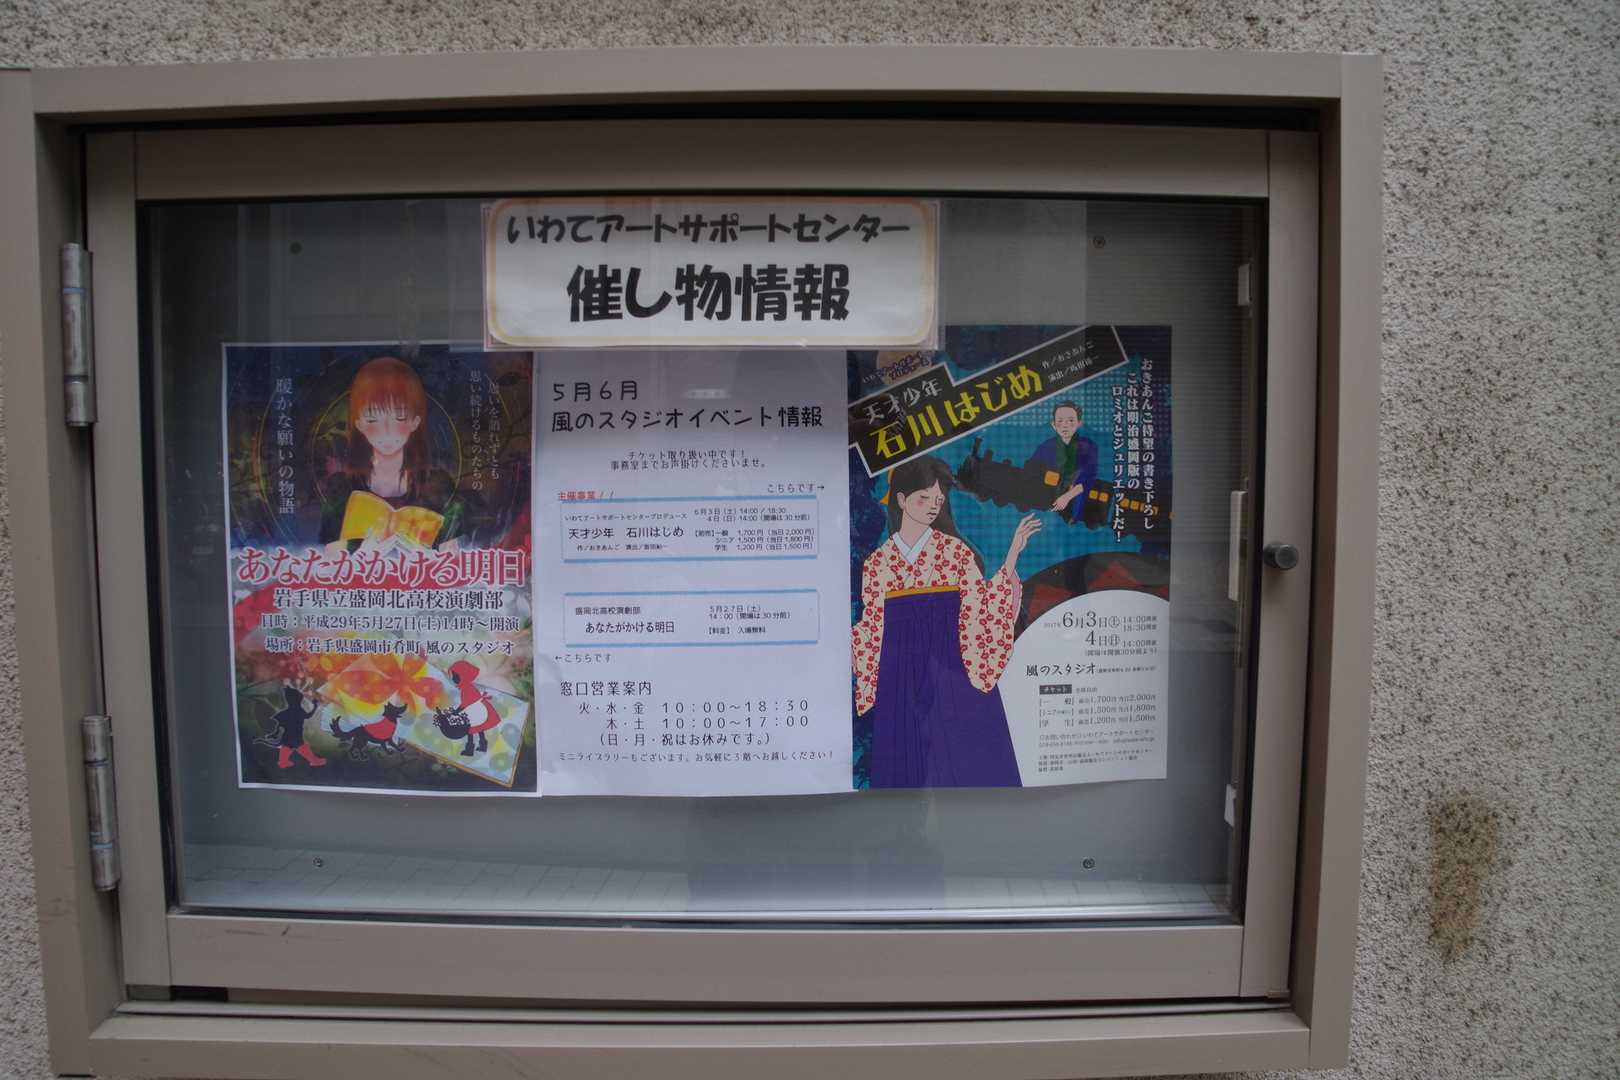 いわてアートサポートセンター
催し物情報
思いを語れずとも
思い続けるものたちの、
暖かな願いの物語
あなたがかける明日
岩手県立盛岡北高校演劇部
日時：平成29年5月27日(土)14時～開演
場所：岩手県盛岡市肴町 風のスタジオ
5月6月
風のスタジオイベント情報
チケット取り扱い中です！
事務室までお声掛けくださいませ。
こちらです→
主催事業！！
いわてアートサポートセンタープロデュース
天才少年 石川はじめ
作／おきあんご 演出／坂田裕一
6月3日（土）14:00 / 18:30
4日（日）14:00（開場は30分前）
【前売】一般 1,700円（当日2,000円）
シニア 1,500円（当日1,800円）
学生 1,200円（当日1,500円）
盛岡北高校演劇部
あなたがかける明日
5月27日（土）
14：00（開場は30分前）
【料金】 入場無料
←こちらです
窓口営業案内
火・水・金 10：00～18：30
木・土 10：00～17：00
（日・月・祝はお休みです。）
ミニライブラリーもございます。お気軽に3階へお越しください！
いわてアートサポート
天才少年
石川はじめ
作／おきあんご
演出／坂田裕一
おきあんご待望の書き下ろし
これは明治盛岡版の
ロミオとジュリエットだ！
2017年 6月3日(土) 14:00開演
18:30開演
4日(日) 14:00開演
(開場は開演30分前より)
風のスタジオ
チケット 全席自由
[一 般] 前売1,700円 当日2,000円
[シニア] 前売1,500円 当日1,800円
[学 生] 前売1,200円 当日1,500円